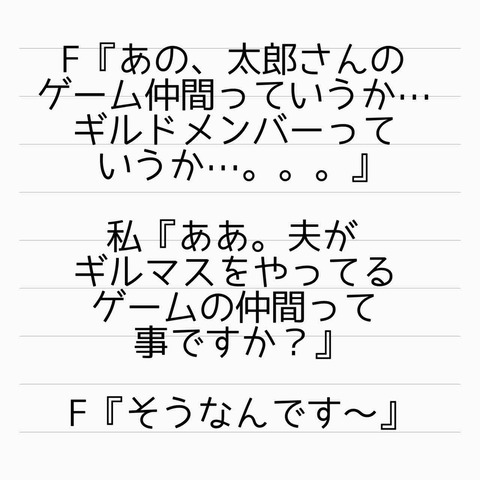 F『あの、太郎さんの
ゲーム仲間っていうか…
ギルドメンバーって
いうか…。。。』
私『ああ。夫が
ギルマスをやってる
ゲームの仲間って
事ですか？』
F『そうなんです〜』